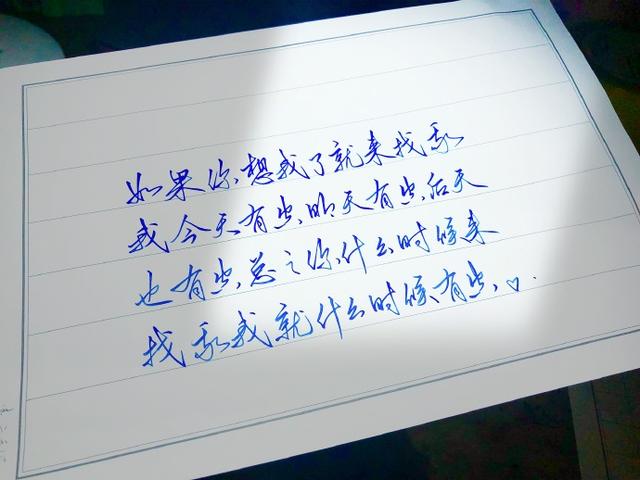 如果你想我了就来找我
我今天有空,明天有空,后天
也有空,总之你什么时候来
找我我就什么时候有空,♡.